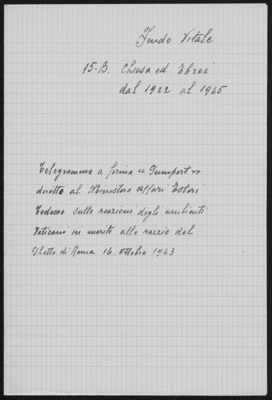 Fondo Vitale
15-B. Chiesa ed Ebrei
dal 1922 al 1945
Telegramma a firma "Gumpert"
diretto al Ministero Affari Esteri
Tedesco sulle reazioni degli ambienti
Vaticani in merito alle razzie del
Ghetto di Roma 16 ottobre 1943